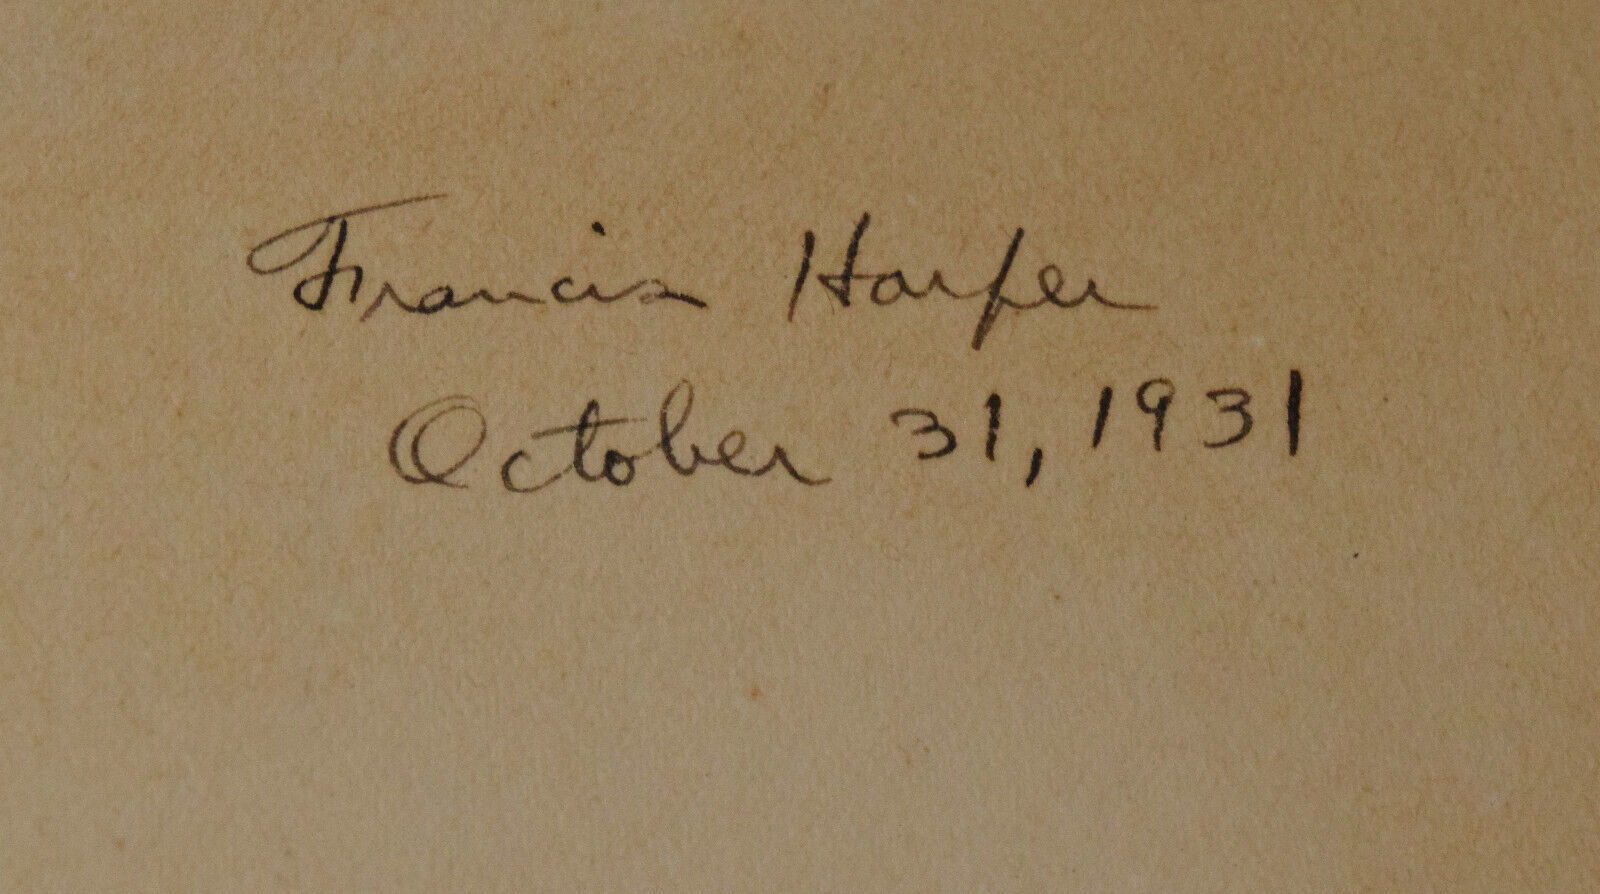 Francis Harper
October 31, 1931